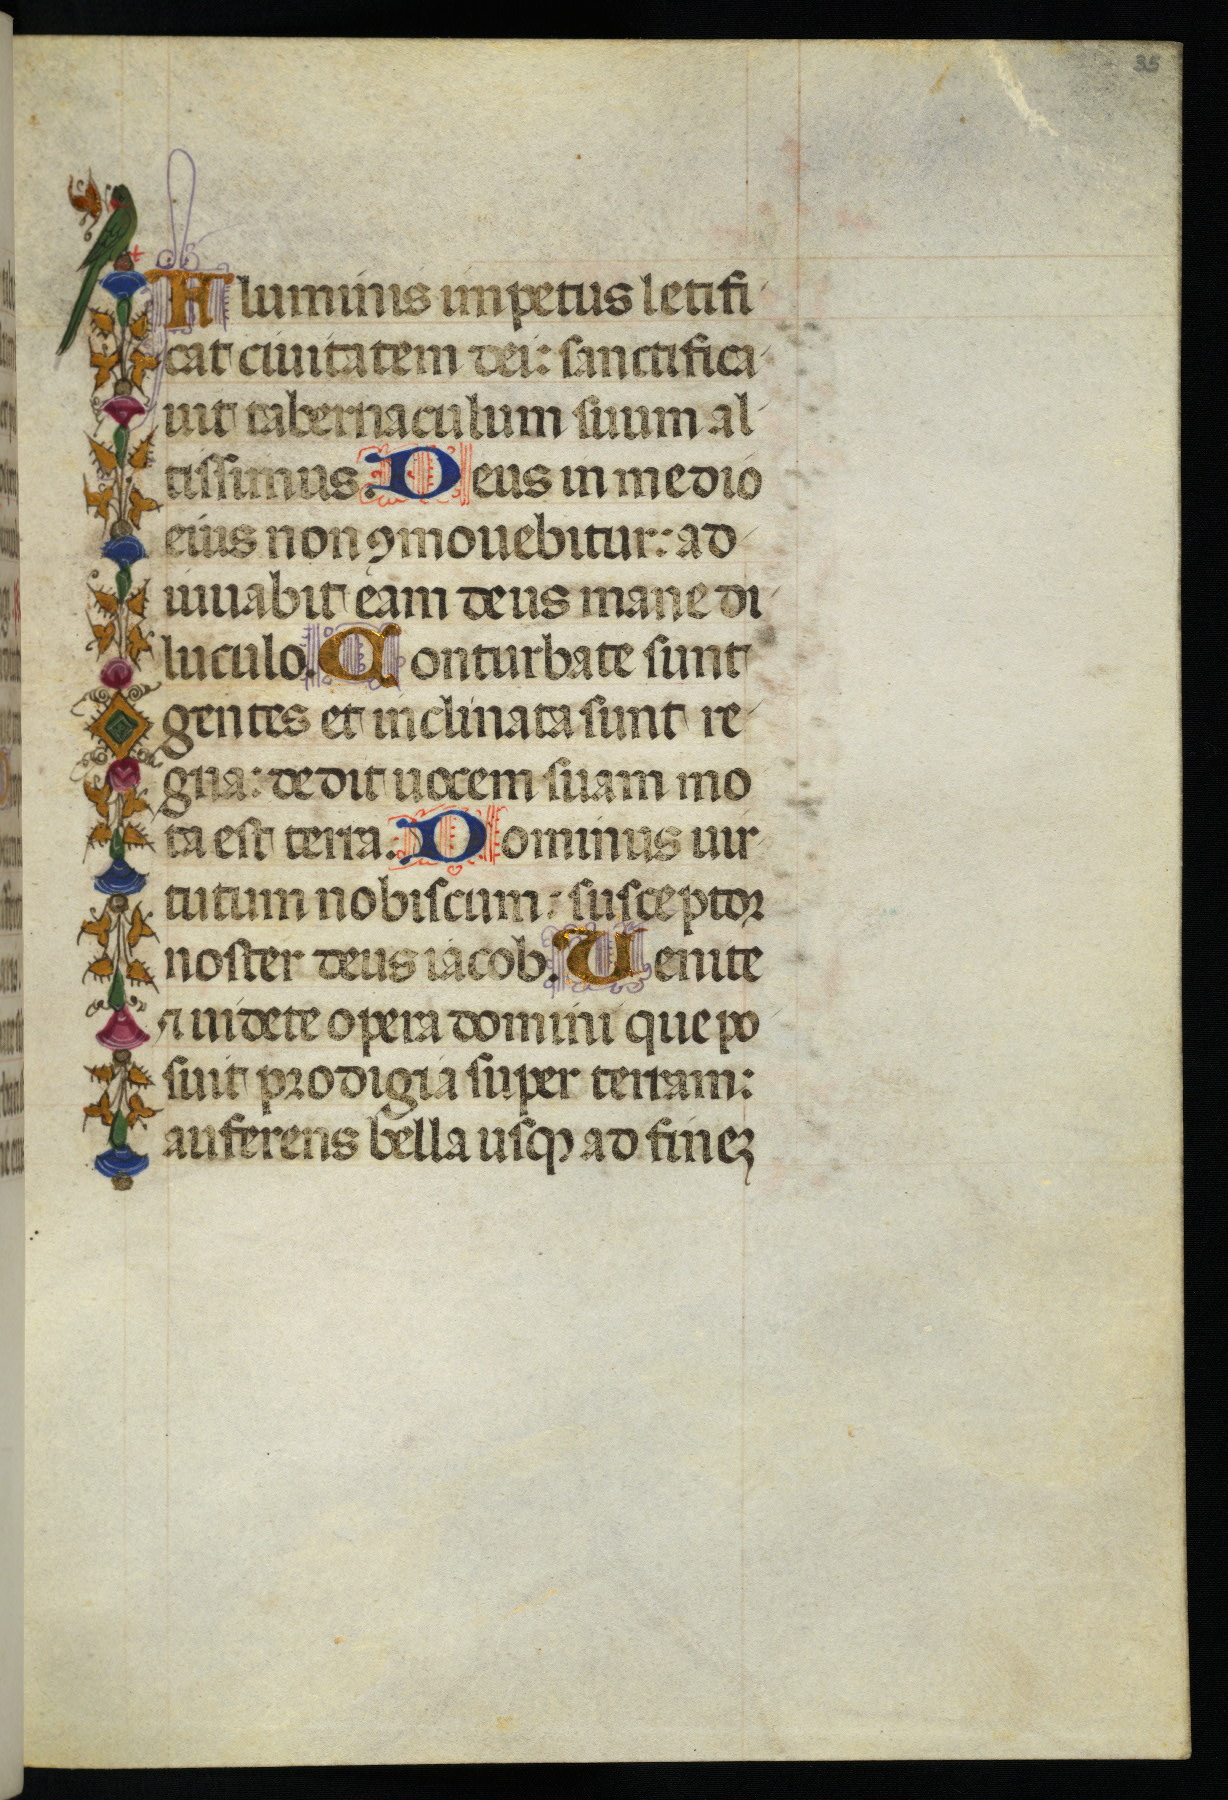 35
Fluminis impetus letifi
cat ciuitatem dei: sanctifica
uit tabernaculum suum al
tissimus. Deus in medio
eius non ꝯmouebitur: ad
iuuabit eam deus mane di
luculo. Conturbate sunt
gentes et inclinata sunt re
gna: dedit uocem suam mo
ta est terra. Dominus uir
tutum nobiscum: susceptor
noster deus iacob. Uenite
⁊ uidete opera domini que po
suit prodigia super terram:
auferens bella usqꝫ ad fineꝫ